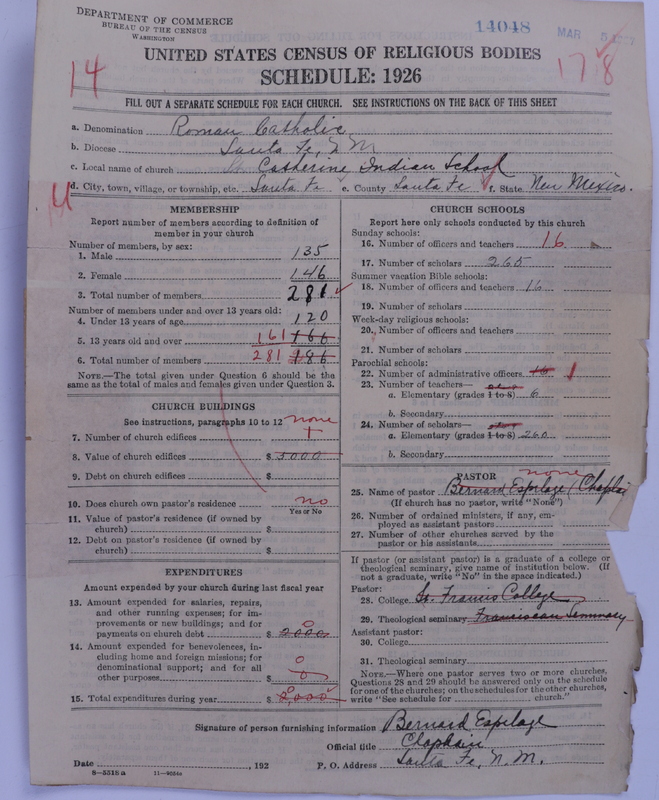 DEPARTMENT OF COMMERCE
BUREAU OF THE CENSUS
WASHINGTON
14048
MAR 5
14
17 8
UNITED STATES CENSUS OF RELIGIOUS BODIES
SCHEDULE: 1926
FILL OUT A SEPARATE SCHEDULE FOR EACH CHURCH. SEE INSTRUCTIONS ON THE BACK OF THIS SHEET
a. Denomination Roman Catholic
b. Diocese Santa Fe, N M
c. Local name of church St. Catherine Indian School
d. City, town, village, or township, etc. Santa Fe e. County Santa Fe f. State New Mexico.
MEMBERSHIP
Report number of members according to definition of
member in your church
Number of members, by sex:
1. Male 135
2. Female 146
3. Total number of members 281
Number of members under and over 13 years old:
4. Under 13 years of age 120
5. 13 years old and over 161 166
6. Total number of members 281 186
NOTE.—The total given under Question 6 should be
same as the total of males and females given under Question 3.
CHURCH BUILDINGS
See instructions, paragraphs 10 to 12 none
7. Number of church edifices 1
8. Value of church edifices $ 5000
9. Debt on church edifices $
10. Does church own pastor's residence no
Yes or No
11. Value of pastor's residence (if owned by
church) $
12. Debt on pastor's residence (if owned by
church) $
EXPENDITURES
Amount expended by your church during last fiscal year
13. Amount expended for salaries, repairs,
and other running expenses; for im-
provements or new buildings; and for
payments on church debt $ 2000 0
14. Amount expended for benevolences, in-
cluding home and foreign missions; for
denominational support; and for all
other purposes $ 0
15. Total expenditures during year $ 2,000 0
CHURCH SCHOOLS
Report here only schools conducted by this church
Sunday schools:
16. Number of officers and teachers 16
17. Number of scholars 265
Summer vacation Bible schools:
18. Number of officers and teachers 16
19. Number of scholars
Week-day religious schools:
20. Number of officers and teachers
21. Number of scholars
Parochial schools:
22. Number of administrative officers 16 1
23. Number of teachers—
a. Elementary (grades 1 to 8) 6
b. Secondary
24. Number of scholars—
a. Elementary (grades 1 to 8) 260
b. Secondary
PASTOR none
25. Name of pastor Bernard Espelage (Chaplai
(If church has no pastor, write "None")
26. Number of ordained ministers, if any, em-
ployed as assistant pastors
27. Number of other churches served by the
pastor or his assistants
If pastor (or assistant pastor) is a graduate of a college or
theological seminary, give name of institution below. (If
not a graduate, write "No" in the space indicated.)
Pastor:
28. College St. Francis College
29. Theological seminary Franciscan Seminary
Assistant pastor:
30. College
31. Theological seminary
NOTE.—Where one pastor serves two or more churches,
Questions 28 and 29 should be answered only on the schedule
for one of the churches; on the schedules for the other churches,
write "See schedule for church."
Signature of person furnishing information Bernard Espelage
Official title Chaplain
Date , 192 P. O. Address Santa Fe, N. M.
8—5518 a 11—9554